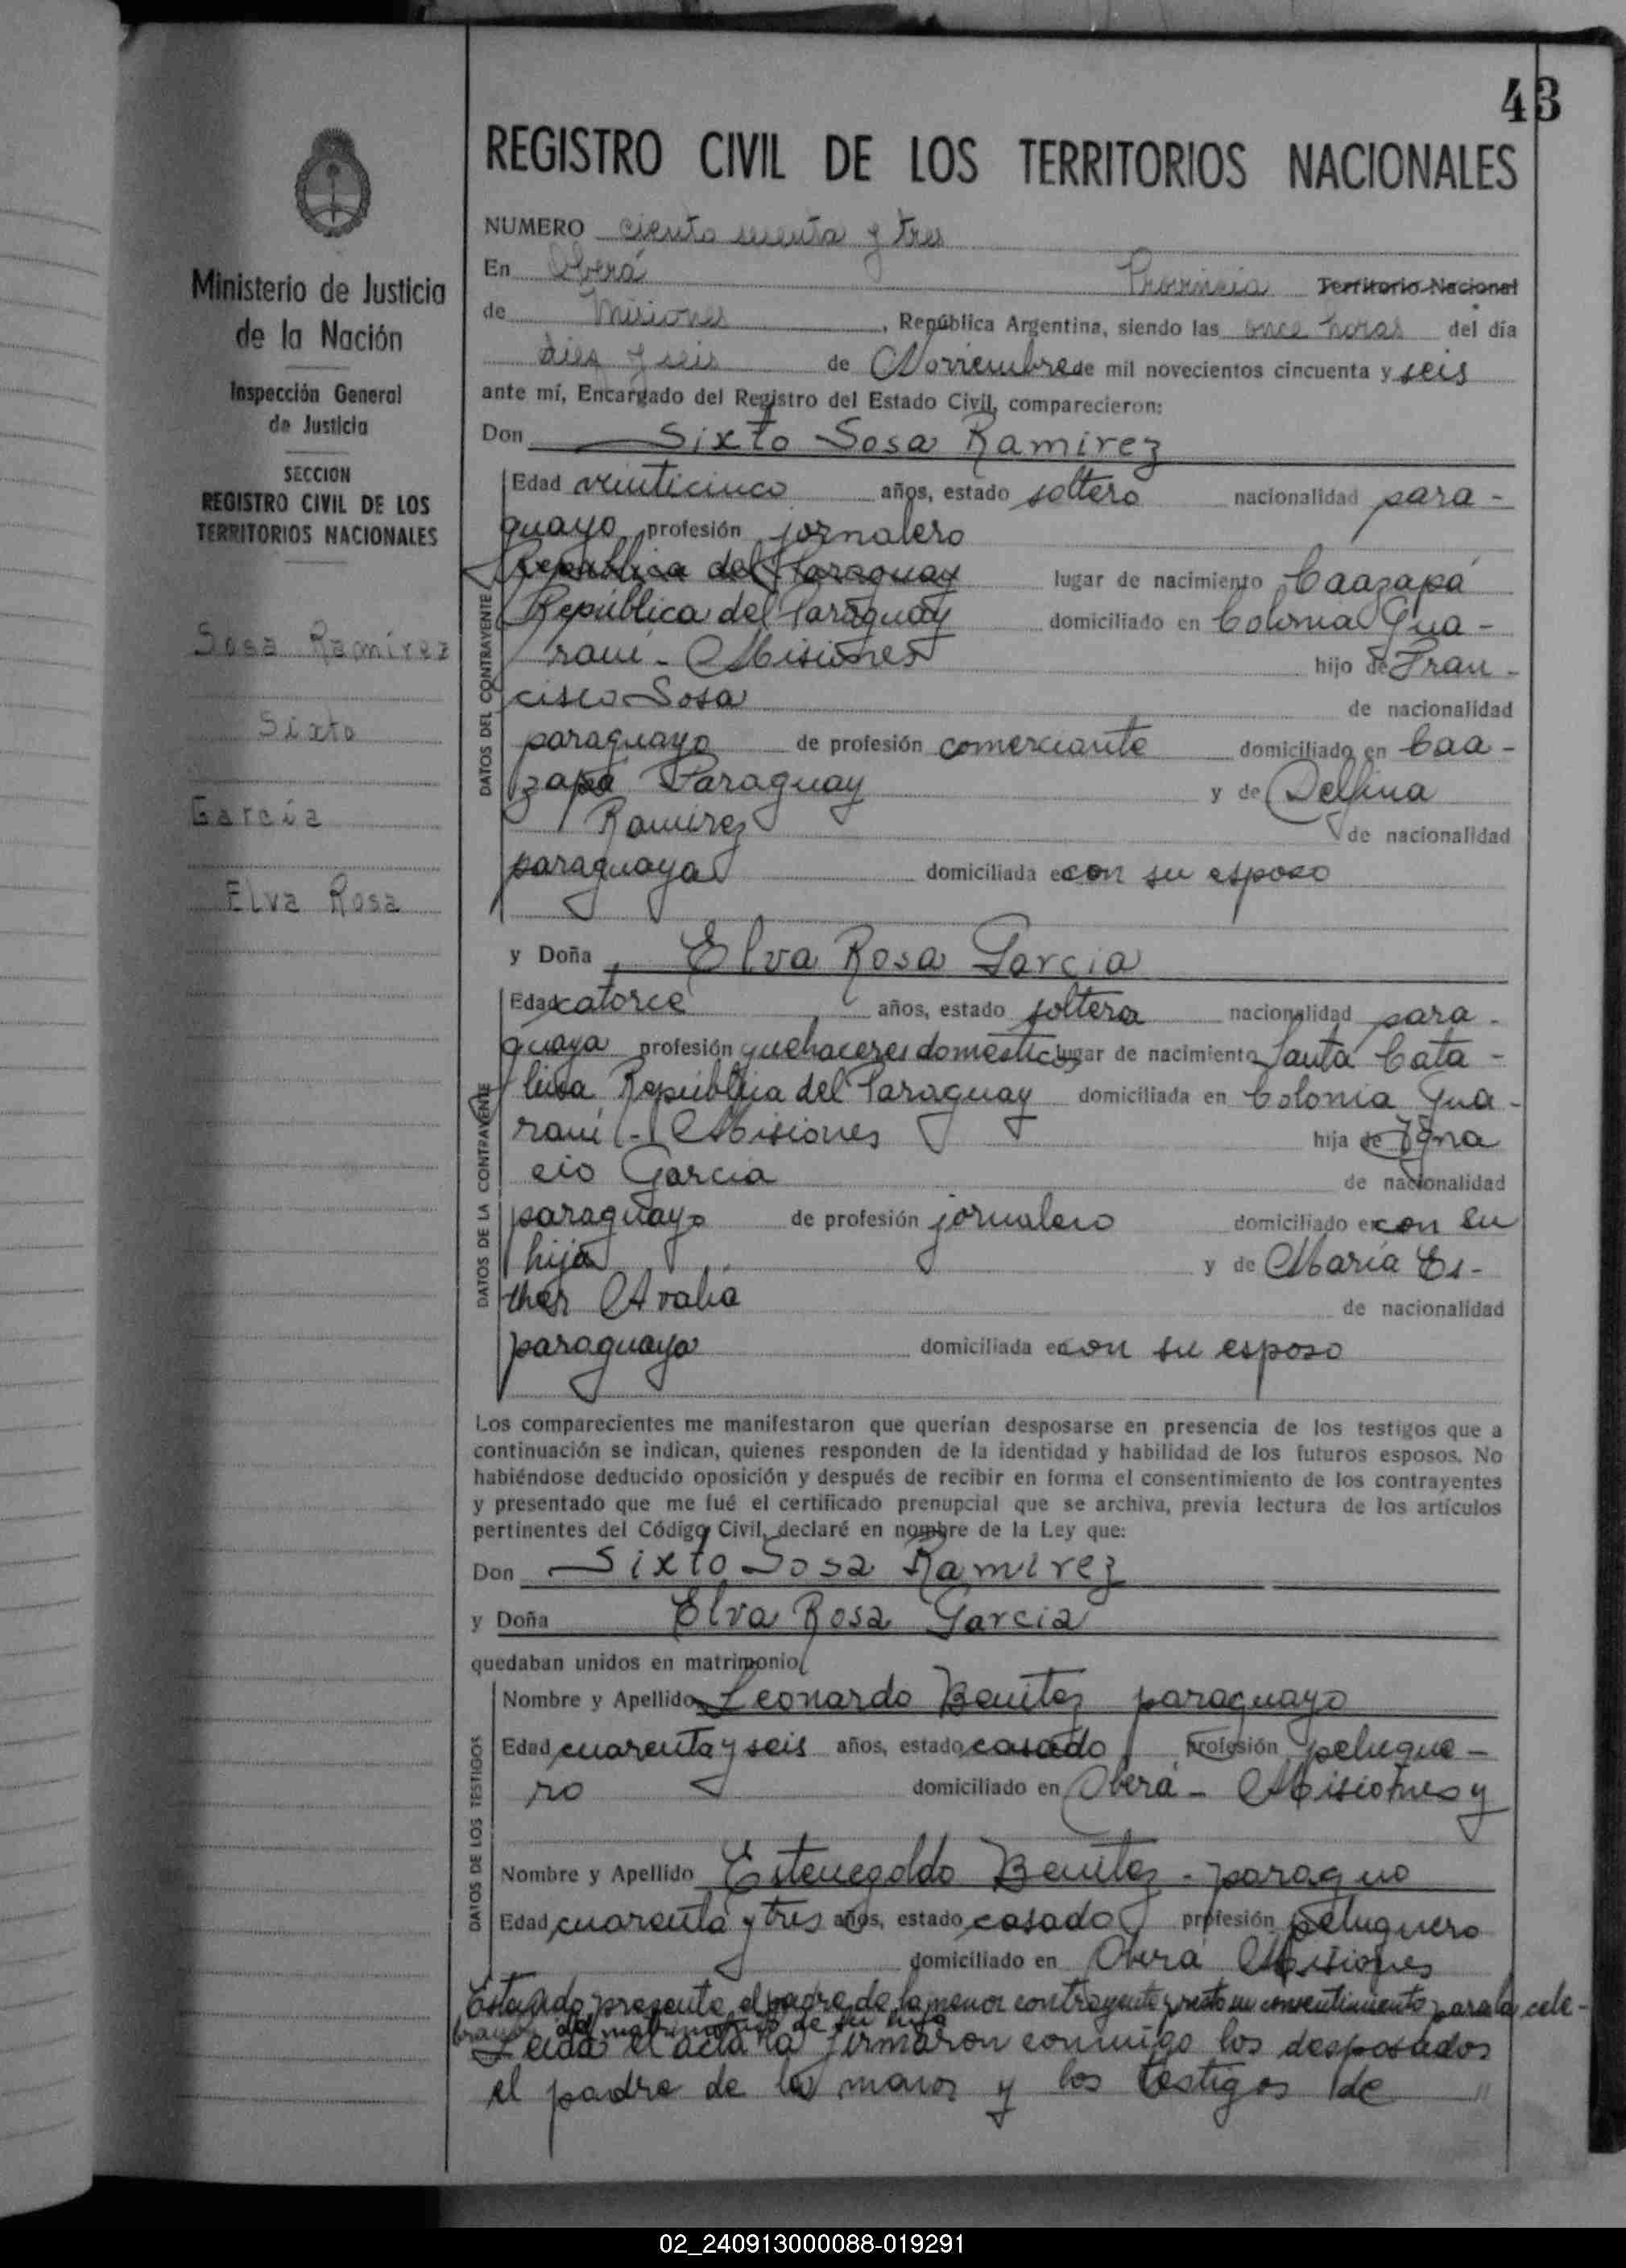 43
REGISTRO CIVIL DE LOS TERRITORIOS NACIONALES
Ministerio de Justicia
de la Nación
Inspección General
de Justicia
SECCION
REGISTRO CIVIL DE LOS
TERRITORIOS NACIONALES
Sosa Ramírez
Sixto
García
Elva Rosa
NUMERO ciento y tres
En Oberá Provincia Territorio Nacional
de Misiones, República Argentina, siendo las once horas del día
diez y seis de Noviembre de mil novecientos cincuenta y seis
ante mí, Encargado del Registro del Estado Civil, comparecieron:
Don Sixto Sosa Ramirez
DATOS DEL CONTRAYENTE
Edad veinticinco años, estado soltero nacionalidad para-
guayo profesión jornalero
República del Paraguay lugar de nacimiento Caazapá
República del Paraguay domiciliado en Colonia Gua-
raní - Misiones hijo de Fran-
cisco Sosa de nacionalidad
paraguayo de profesión comerciante domiciliado en Caa-
zapá Paraguay y de Delfina
Ramirez de nacionalidad
paraguaya domiciliada en con su esposo
y Doña Elva Rosa Garcia
DATOS DE LA CONTRAYENTE
Edad catorce años, estado soltera nacionalidad para-
guaya profesión quehaceres domesticos lugar de nacimiento Santa Cata-
lina República del Paraguay domiciliada en Colonia Gua-
raní - Misiones hija de Igna
cio Garcia de nacionalidad
paraguayo de profesión jornalero domiciliado en con su
hija y de María Es-
ther de nacionalidad
paraguaya domiciliada en con su esposo
Los comparecientes me manifestaron que querían desposarse en presencia de los testigos que a
continuación se indican, quienes responden de la identidad y habilidad de los futuros esposos. No
habiéndose deducido oposición y después de recibir en forma el consentimiento de los contrayentes
y presentado que me fué el certificado prenupcial que se archiva, previa lectura de los artículos
pertinentes del Código Civil, declaré en nombre de la Ley que:
Don Sixto Sosa Ramirez
y Doña Elva Rosa Garcia
quedaban unidos en matrimonio
DATOS DE LOS TESTIGOS
Nombre y Apellido Leonardo Benitez paraguayo
Edad cuarenta y seis años, estado casado profesión peluque-
ro domiciliado en Oberá - Misiones y
Nombre y Apellido Benitez - paraguo
Edad cuarenta y tres años, estado casado profesión peluquero
domiciliado en Oberá Misiones
Estando presente el padre de la menor contrayente presto su consentimiento para la cele-
bracion del matrimonio de su hija
Leida el acta la firmaron conmigo los desposados
el padre de la menor y los testigos de "
02_240913000088-019291